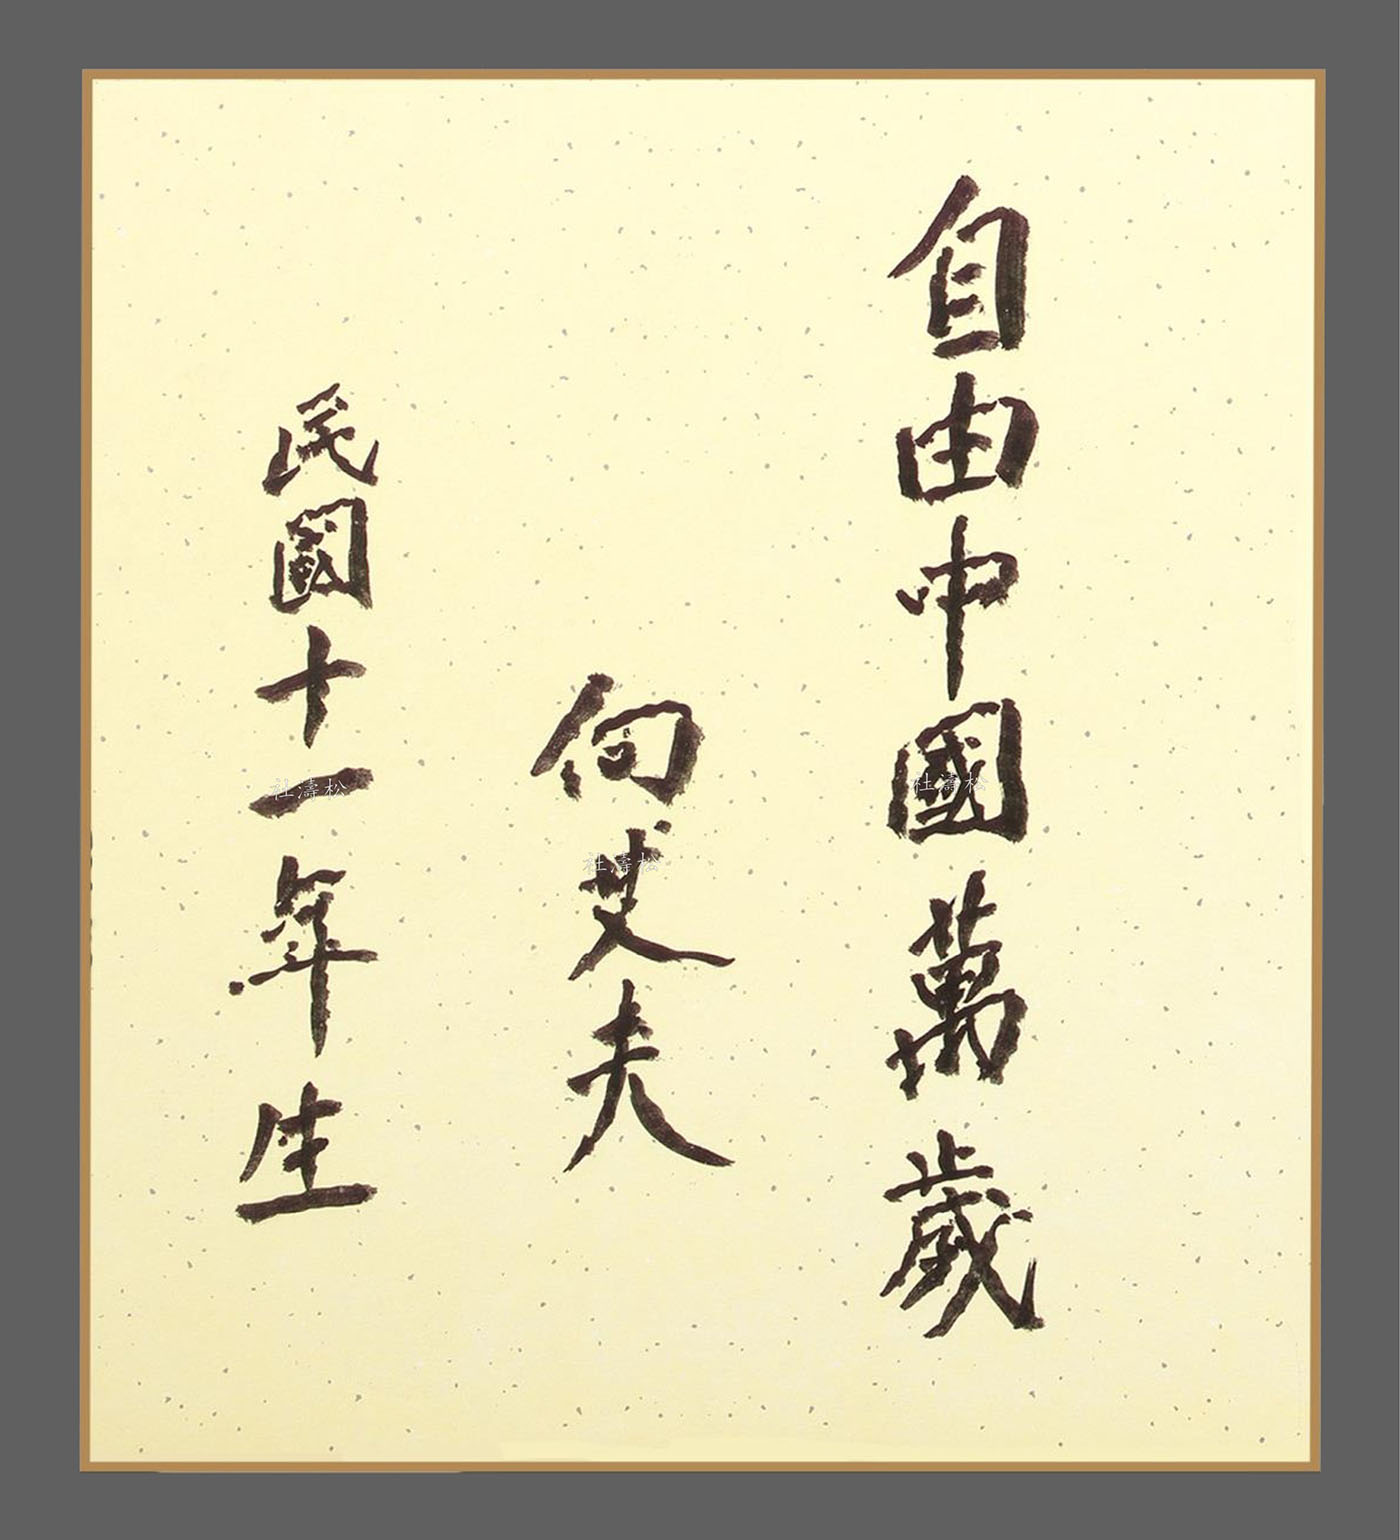 自由中國萬歲
向艾夫
民國十一年生
社濤松
社濤松
社濤松